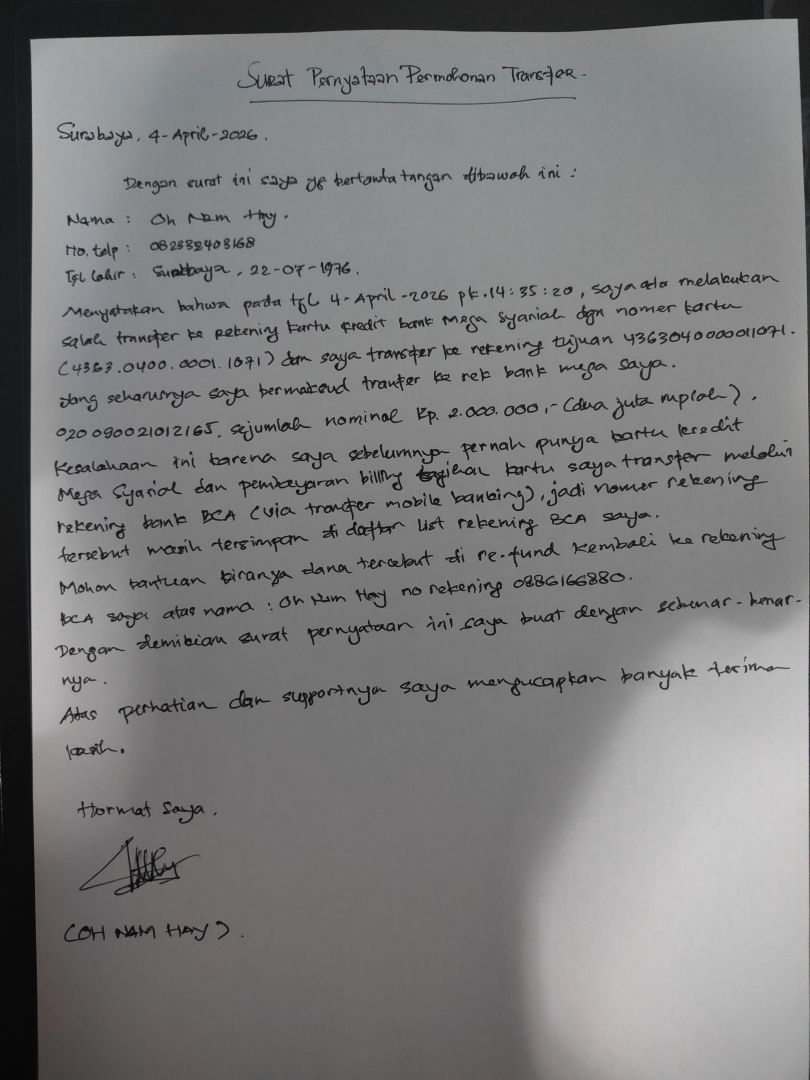 Surat Pernyataan Permohonan Transfer.
Surabaya, 4-April-2026.
Dengan surat ini saya yg bertanda tangan dibawah ini :
Nama : Oh Nam Hay.
No. telp : 082332403168
Tgl Lahir : Surabaya, 22-07-1976.
Menyatakan bahwa pada tgl 4-April-2026 pk.14:35:20, saya ada melakukan
salah transfer ke rekening kartu kredit bank Mega Syariah dgn nomer kartu
(4363.0400.0001.1071) dan saya transfer ke rekening tujuan 4363040000011071.
Yang seharusnya saya bermaksud transfer ke rek bank mega saya.
020090021012165. sejumlah nominal Rp. 2.000.000,- (dua juta rupiah).
Kesalahaan ini karena saya sebelumnya pernah punya kartu kredit
Mega Syariah dan pembayaran billing tagihan kartu saya transfer melalui
rekening bank BCA (via transfer mobile banking), jadi nomer rekening
tersebut masih tersimpan di daftar list rekening BCA saya.
Mohon bantuan kiranya dana tersebut di re-fund kembali ke rekening
BCA saya atas nama : Oh Nam Hay no rekening 0886166880.
Dengan demikian surat pernyataan ini saya buat dengan sebenar-benar-
nya.
Atas perhatian dan supportnya saya mengucapkan banyak terima
kasih.
Hormat saya.
(OH NAM HAY).